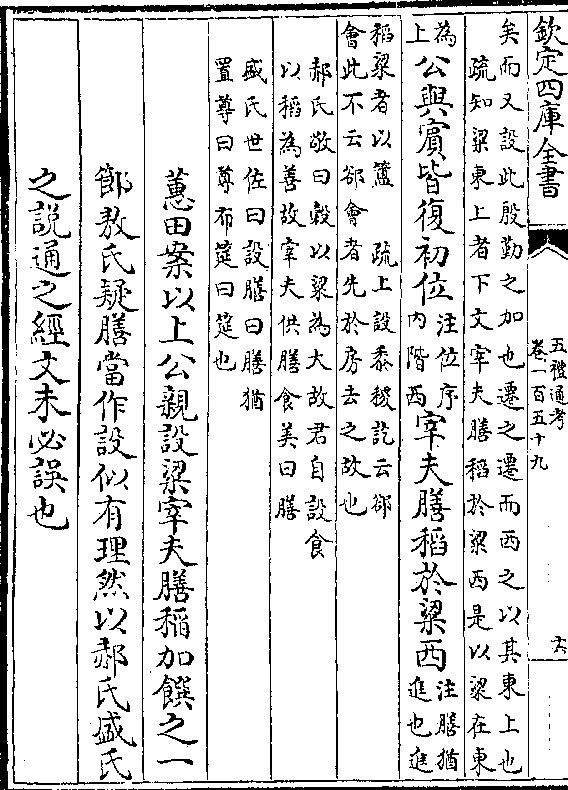 欽定四庫全書
五禮通考
卷一百五十九
十六
矣而又設此殷勤之加也遷之遷而西之以其東上也
疏知粱東上者下文宰夫膳稻於粱西是以粱在東
為上公與賓皆復初位注位序內階西宰夫膳稻於粱西注膳猶進也進
稻粱者以簠 疏上設黍稷訖云郤
會此不云郤會者先於房去之故也
郝氏敬曰穀以粱為大故君自設食
以稻為善故宰夫供膳食美曰膳
盛氏世佐曰設膳曰膳猶
置尊曰尊布筵曰筵也
蕙田案以上公親設粱宰夫膳稻加饌之一
節敖氏疑膳當作設似有理然以郝氏盛氏
之說通之經文未必誤也